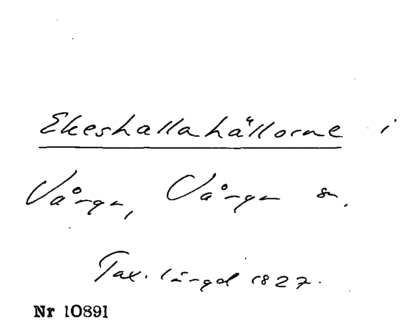 Ekeshallahällorne i
Vånga, Vånga sn.
Tax. längd 1827.
Nr 10891